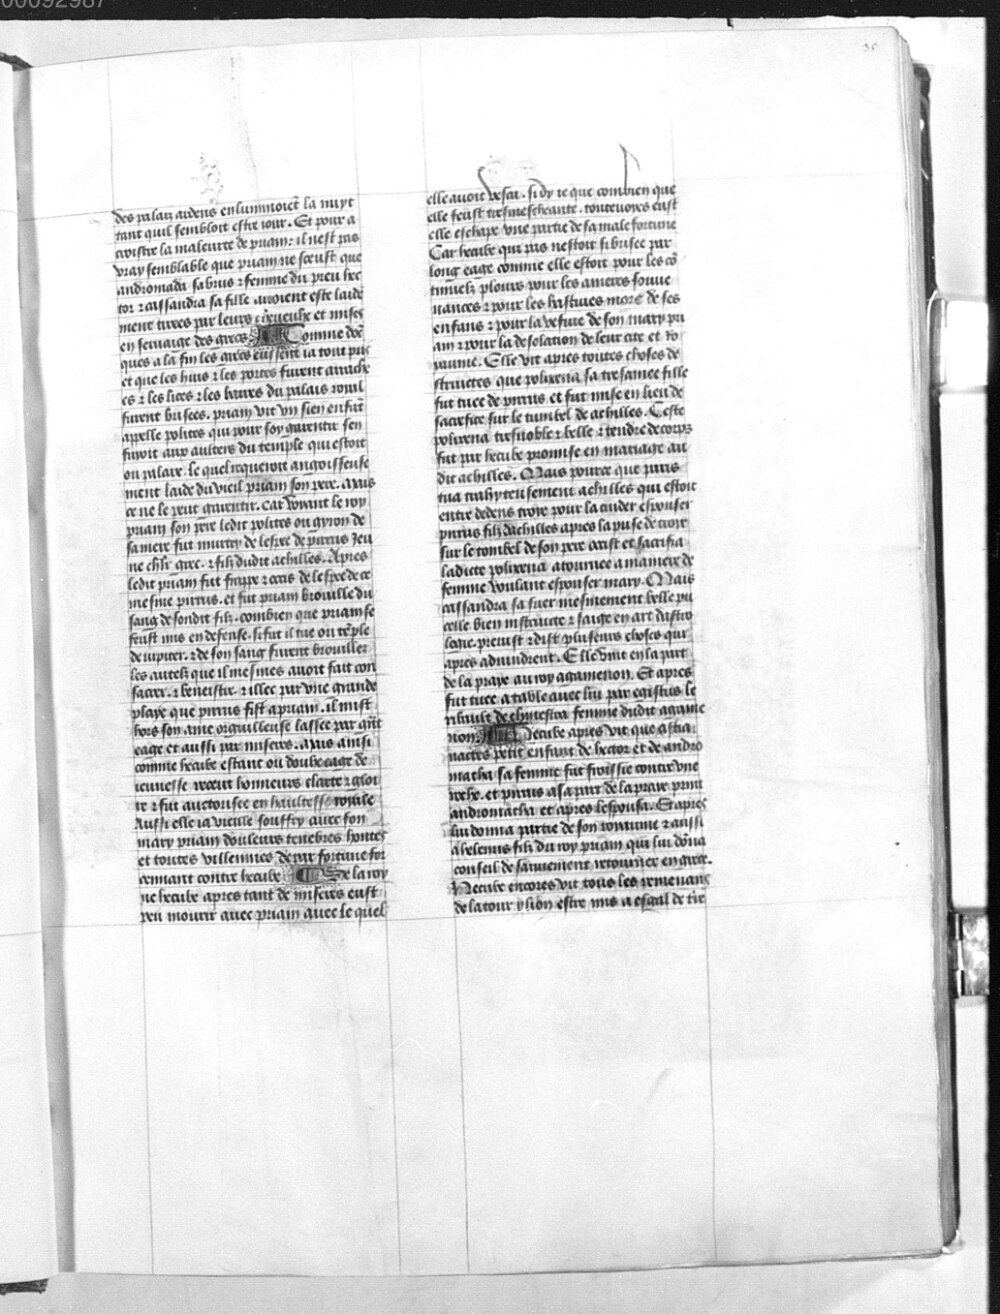 00092987
36
des palaiz ardens enluminoiet la nuyt
tant quil sembloit estre iour. Et pour a
croistre la maleurte de priam: il nest pas
vray semblable que priam ne sceust que
andromada sa brus ⁊ femme du preu hec
tor ⁊ cassandra sa fille auoient este laide
ment tirees par leurs cheueulx et mises
en seruaige des grecs Comme donc
ques a la fin les grecs eussent ia tout pris
et que les huis ⁊ les portes furent arrache
es ⁊ les lices ⁊ les barres du palais roial
furent brisees. priam vit vn sien enfāt
appelle polites qui pour soy garentir sen
fuyoit aux aultiers du temple qui estoit
ou palaix. le quel requeroit angoisseuse
ment laide du vieil priam son pere. Mais
ce ne le peut garentir. car voyant le roy
priam son pere ledit polites ou gyron de
sa mere fut murtry de lespee de pirrus Jeu
ne chlr grec. ⁊ filz dudit achilles. Apres
ledit priam fut frappe ⁊ occis de lespee de ce
mesme pirrus. et fut priam brouille du
sang de sondit filz. combien que priam se
feust mis en defense. si fut il tue ou tēple
de iupiter. ⁊ de son sang furent brouillez
les autelz que il mesmes auoit fait con
sacrer. ⁊ beneistre. ⁊ illec par vne grande
playe que pirrus fist a priam. il mist
hors son ame orguilleuse lassee par grāt
eage et aussi par miseres. Mais ainsi
comme hecube estant ou double eage de
ieunesse receut honneurs clarte ⁊ gloi
re ⁊ fut auctorisee en haultesse royale
Aussi elle ia vieille souffry auec son
mary priam douleurs tenebres hontes
et toutes villennies de par fortune for
cennant contre hecube Se la roy
ne hecube apres tant de miseres eust
peu mourir auec priam auec le quel
elle auoit vescu. si dy ie que combien que
elle feust tresmescheante. toutevoyes eust
elle eschape vne partie de sa male fortune
Car hecube qui pas nestoit si brisee par
long eage comme elle estoit pour les cō
tinuelz plours pour les ameres souue
nances ⁊ pour les hastiues mors de ses
enfans ⁊ pour la vefue de son mary pri
am ⁊ pour la desolation de leur cite et ro
yaume. Elle vit apres toutes choses de
structes que polixena sa tresamee fille
fut tuee de pirrus et fut mise en lieu de
sacrefice sur le tumbel de achilles. Ceste
polixena tresnoble ⁊ belle ⁊ tendre de corps
fut par hecube promise en mariage au
dit achilles. Mais pource que paris
tua trahyteusement achilles qui estoit
entre dedens troye pour la cuider espouser
pirrus filz dachilles apres la prise de troye
sur le tombel de son pere occist et sacrifia
ladicte polixena atournee a maniere de
femme voulant espouser mary. Mais
cassandra sa suer mesmement belle pu
celle bien instruite ⁊ saige en art dastro
logie. preuist ⁊ dist plusieurs choses qui
apres aduindrent. Elle vint en la part
de la praye au roy agamenon. Et apres
fut tuee a table auec lui par egistus le
ribault de clymestra femme dudit agame
non Hecube apres vit que astia
nactes petit enfant de hector et de andro
matha sa femme fut froissie contre vne
roche. et pirrus a sa part de la praye print
andromatha et apres lespousa. Et apres
lui donna partie de son royaume ⁊ aussi
a helenus filz du roy priam qui lui dōna
conseil de sauuement retourner en grece.
Hecube encores vit tous les remenans
de la tour ylion estre mis a esgal de ter